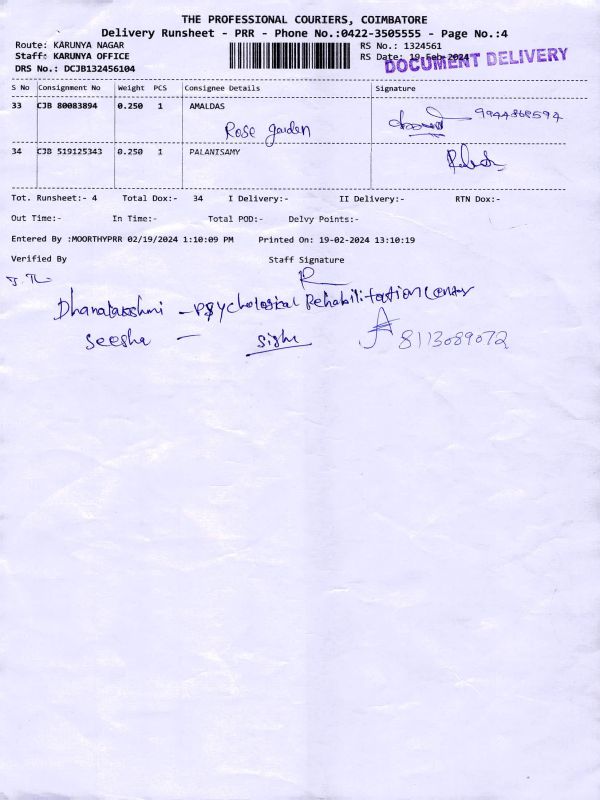 THE PROFESSIONAL COURIERS, COIMBATORE
Delivery Runsheet - PRR - Phone No.:0422-3505555 - Page No.:4
Route: KARUNYA NAGAR RS No.: 1324561
Staff: KARUNYA OFFICE RS Date: 19-Feb-2024
DOCUMENT DELIVERY
DRS No.: DCJB132456104
S No Consignment No Weight PCS Consignee Details Signature
33 CJB 80083894 0.250 1 AMALDAS
Rose garden
34 CJB 519125343 0.250 1 PALANISAMY
Tot. Runsheet:- 4 Total Dox:- 34 I Delivery:- II Delivery:- RTN Dox:-
Out Time:- In Time:- Total POD:- Delvy Points:-
Entered By :MOORTHYPRR 02/19/2024 1:10:09 PM Printed On: 19-02-2024 13:10:19
Verified By Staff Signature
Dhanalakshmi - Psychological Rehabilitation Center
Seesha - 8113089072